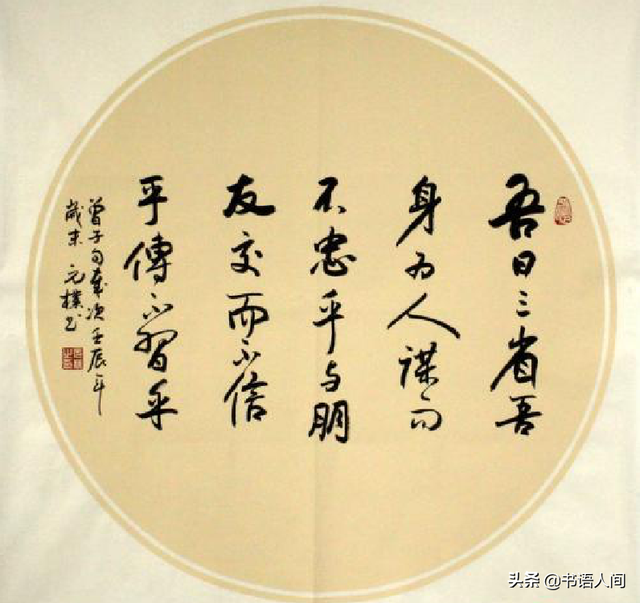 吾日三省吾
身为人谋而
不忠乎与朋
友交而不信
乎傳不習乎
曾子句歲次壬辰年
歲末 元樸书
头条 @书语人间